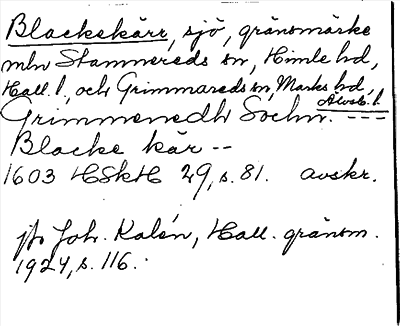 Blackekärr, sjö, gränsmärke
mln Stammereds sn, Himle hd,
Hall. l, och Grimmareds sn, Marks hd,
Älvsb. l.
Grimmenedh Sochn. ---
Blacke kär --
1603 HSkH 29, s. 81. avskr.
jfr Joh. Kalén, Hall. gränsm.
1924, s. 116.